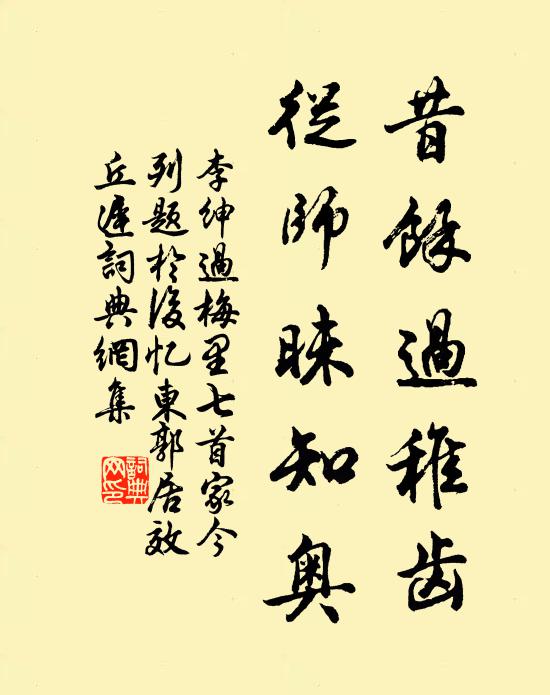 昔餘過稚齿
從師昧知奥
李绅過梅里七首家今
列题於後忆東郭居效
丘遲詞典網集
詞典网印